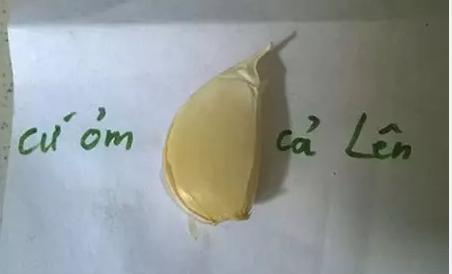 cứ ỏm cả Lên